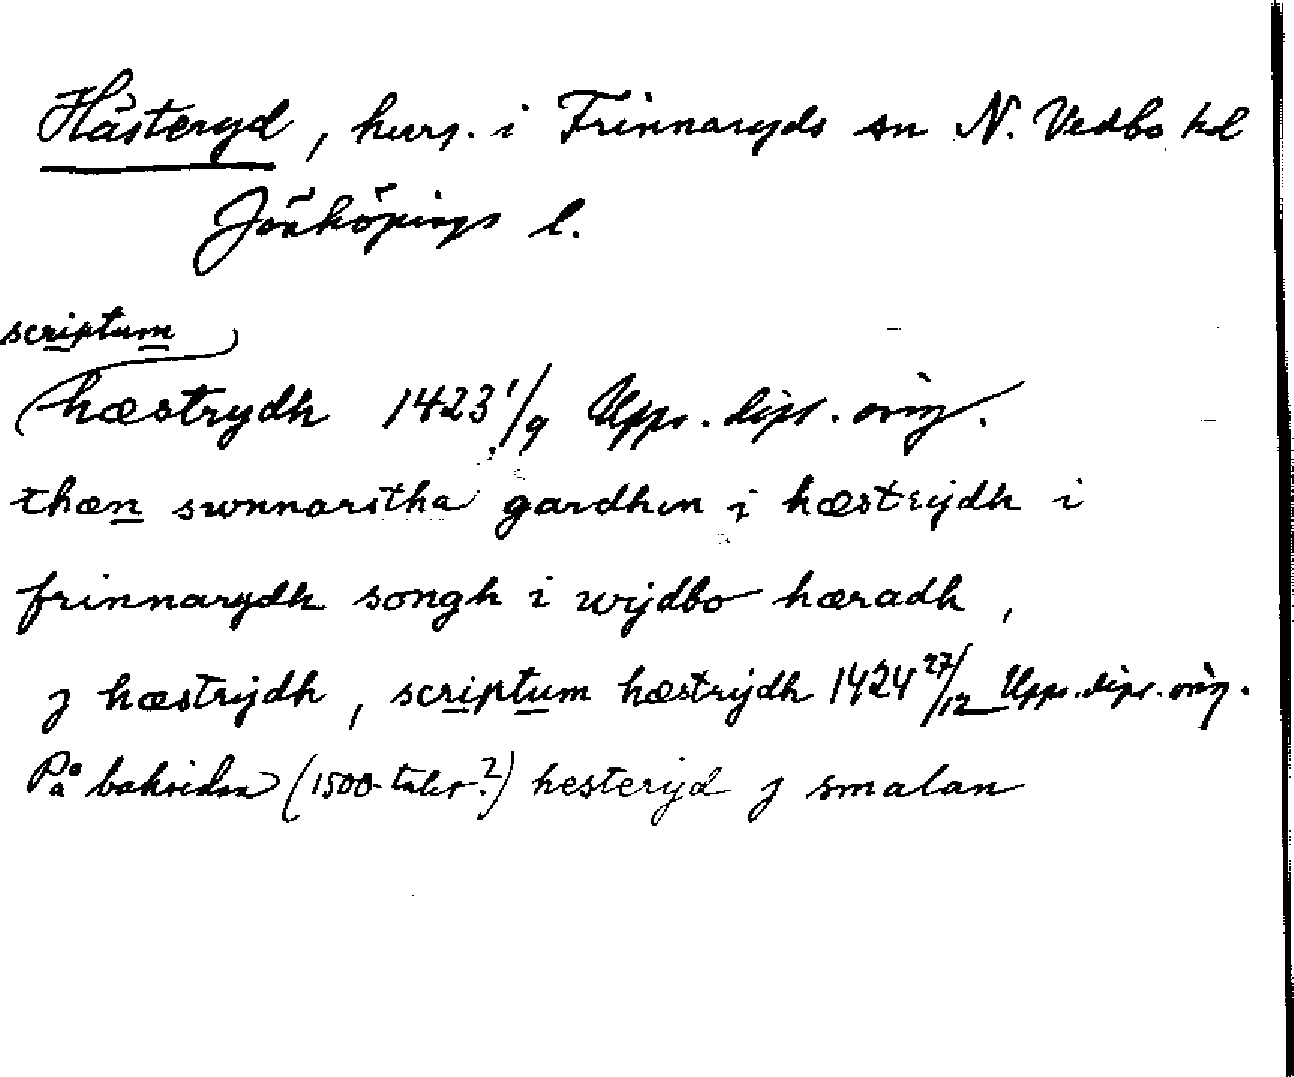 Hästeryd, herg. i Frinnaryds sn N. Vedbo hd
Jönköpings l.
scriptum
hæstrydh 1423 1/9 Upps. dipl. orig.
thæn swnnarstha gardhin i hæstrijdh i
frinnarydh songh i wijdbo hæradh,
j hæstrijdh, scriptum hæstrijdh 1424 27/12 Upps. dipl. orig.
På baksidan (1500-talet?) hesterijd j smalan